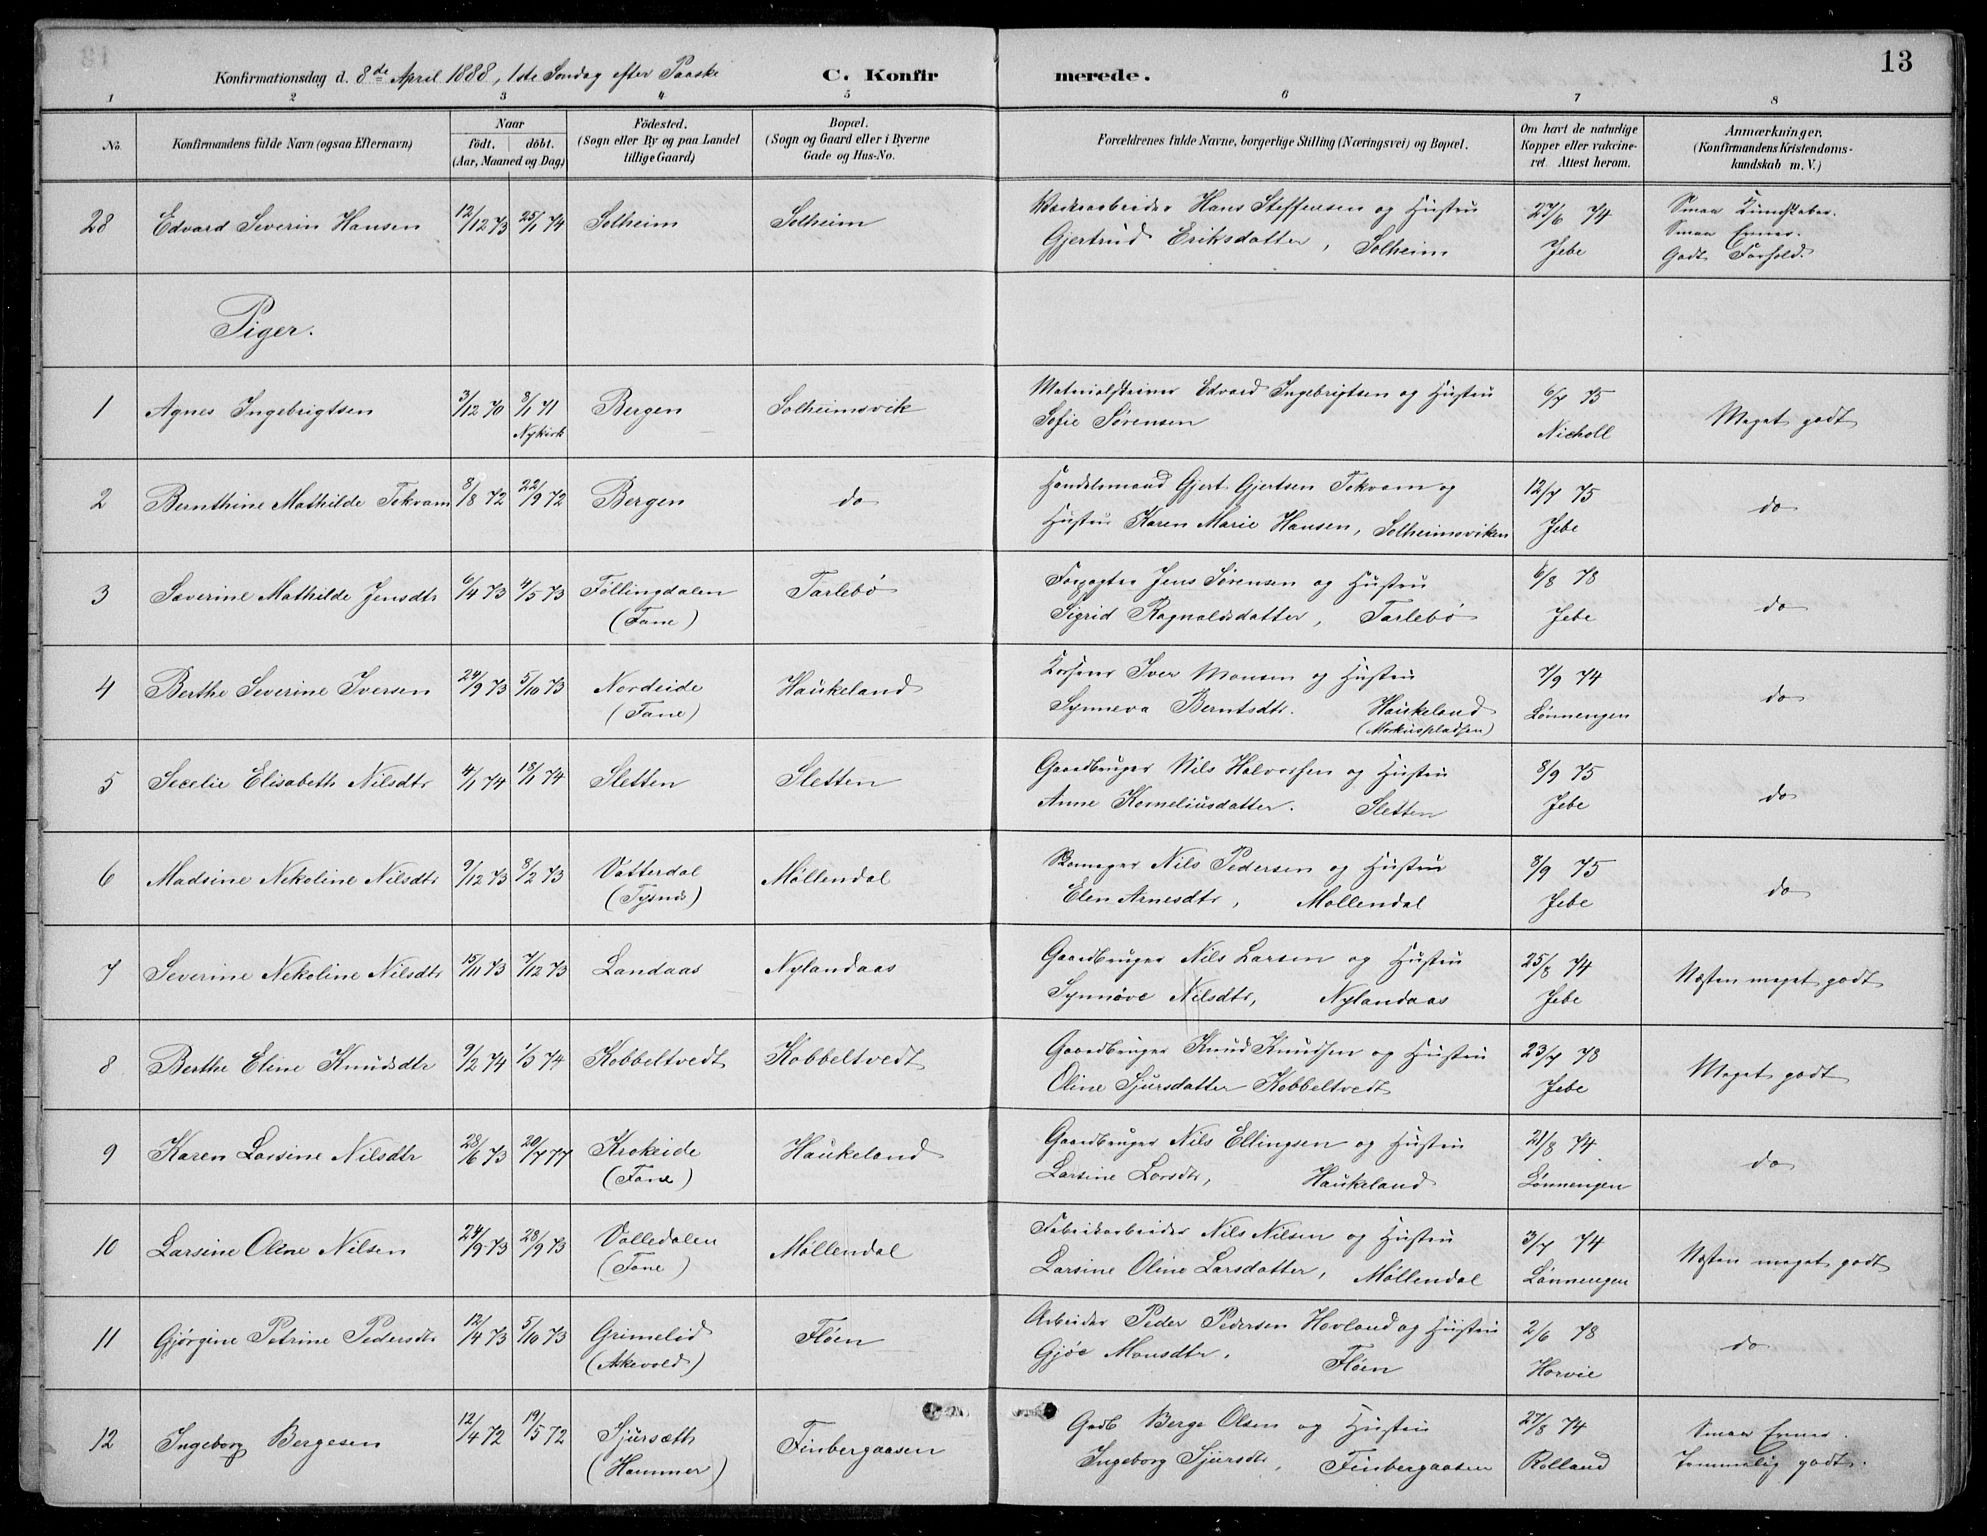 13
Konfirmationsdag d. 8de April 1888, 1ste Søndag efter Paaske C. Konfirmerede.
1 2 3 4 5 6 7 8
No. Konfirmandens fulde Navn (ogsaa Efternavn) Naar født. døbt. (Aar, Maaned og Dag) Fødested. (Sogn eller By og paa Landet tillige Gaard) Bopæl. (Sogn og Gaard eller i Byerne Gade og Hus-No.) Forældrenes fulde Navne, borgerlige Stilling (Næringsvei) og Bopæl. Om havt de naturlige Kopper eller vakcineret. Attest herom. Anmærkninger. (Konfirmandens Kristendomskundskab m. V.)
28 Edvard Severin Hansen 12/12 73 25/1 74 Solheim Solheim Hans Steffensen og Hustru 27/6 74 Smaa Kundskaber.
Gjertrud Eriksdatter, Solheim Jebe Smaa Evner.
Godt Forhold.
Piger.
1 Agnes Ingebrigtsen 3/12 70 8/1 71 Bergen Solheimsvik Edvard Ingebrigtsen og Hustru 6/7 75 Meget godt
Nykirk Sofie Sørensen Nicholl
2 Bernthine Mathilde Tokvam 8/8 72 22/9 72 Bergen do Handelsmand Gjert Gjertsen Tokvam og 12/7 75 do
Hustru Karen Marie Hansen, Solheimsviken Jebe
3 Severine Mathilde Jensdtr 6/4 73 4/5 73 Føllingdalen Tarlebø Forpagter Jens Sørensen og Hustru 6/8 78 do
(Fane) Sigrid Ragnaldsdatter, Tarlebø Jebe
4 Berthe Severine Iversen 24/9 73 5/10 73 Nordeide Haukeland Iver Monsen og Hustru 7/9 74 do
(Fane) Synneva Berntsdtr. Haukeland Lønnengen
(Markuspladsen)
5 Secelie Elisabeth Nilsdtr 4/1 74 18/1 74 Sletten Sletten Gaardbruger Nils Halvorsen og Hustru 8/9 75 do
Anne Korneliusdatter. Sletten Jebe
6 Madsine Nekoline Nilsdtr 9/12 73 8/2 73 Vatterdal Møllendal Skomager Nils Pedersen og Hustru 8/9 75 do
(Tysnes) Elen Arnesdtr, Møllendal Jebe
7 Severine Nekoline Nilsdtr 15/11 73 7/12 73 Landaas Nylandaas Gaardbruger Nils Larsen og Hustru 25/8 74 Næsten meget godt
Synnøve Nilsdtr, Nylandaas Jebe
8 Berthe Eline Knudsdtr 9/2 74 1/3 74 Kobbeltvedt Kobbeltvedt Gaardbruger Knud Knudsen og Hustru 23/7 78 Meget godt
Oline Sjursdatter Kobbeltvedt Jebe
9 Karen Larsine Nilsdtr 28/6 73 20/7 77 Krokeide Haukeland Gaardbruger Nils Ellingsen og Hustru 21/8 74 do
(Fane) Larsine Larsdtr, Haukeland Lønnengen
10 Larsine Oline Nilsen 24/9 73 28/9 73 Valledalen Møllendal Fabrikarbeider Nils Nilsen og Hustru 3/7 74 Næsten meget godt
(Fane) Larsine Oline Larsdatter, Møllendal Lønnengen
11 Gjørgine Petrine Pedersdtr 12/4 73 5/10 73 Grimelid Fløen Arbeider Peder Pedersen Hovland og Hustru 2/6 78 do
(Askevold) Gjøe Monsdtr, Fløen Horvie
12 Ingeborg Bergesen 12/4 72 19/5 72 Sjursæth Finbergaasen Gadb Berge Olsen og Hustru 27/8 74 Smaa Evner.
(Hammer) Ingeborg Sjursdtr, Finbergaasen Rolland Temmelig godt.